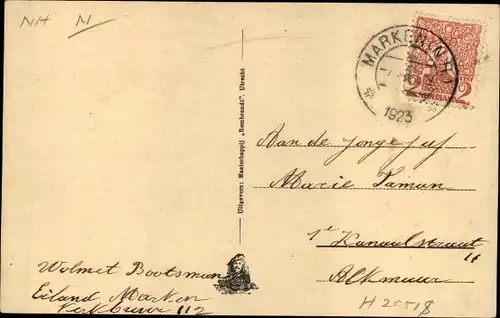 NH N
MARKEN (N.H.)
1923
2 2
Uitgevers: Maatschappij „Rembrandt", Utrecht
Aan de Jongejuf
Marie Taman
1e Kanaalstraat
Alkmaar
Wolmet Bootsman
Eiland Marken
Kerkbuurt 112
H 20518